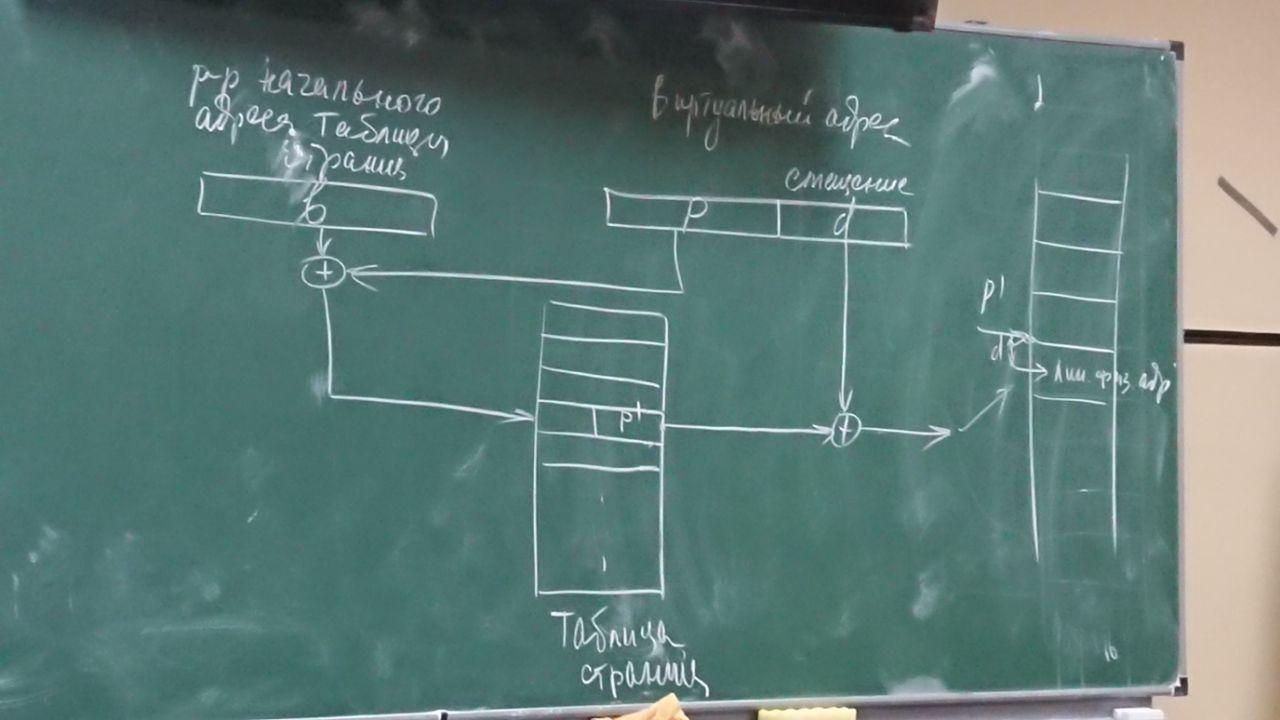 р-р начального
адреса таблицы
страниц
b
+
Виртуальный адрес
смещение
p
d
p'
+
Таблица
страниц
p'
d
Лин. физ. адр